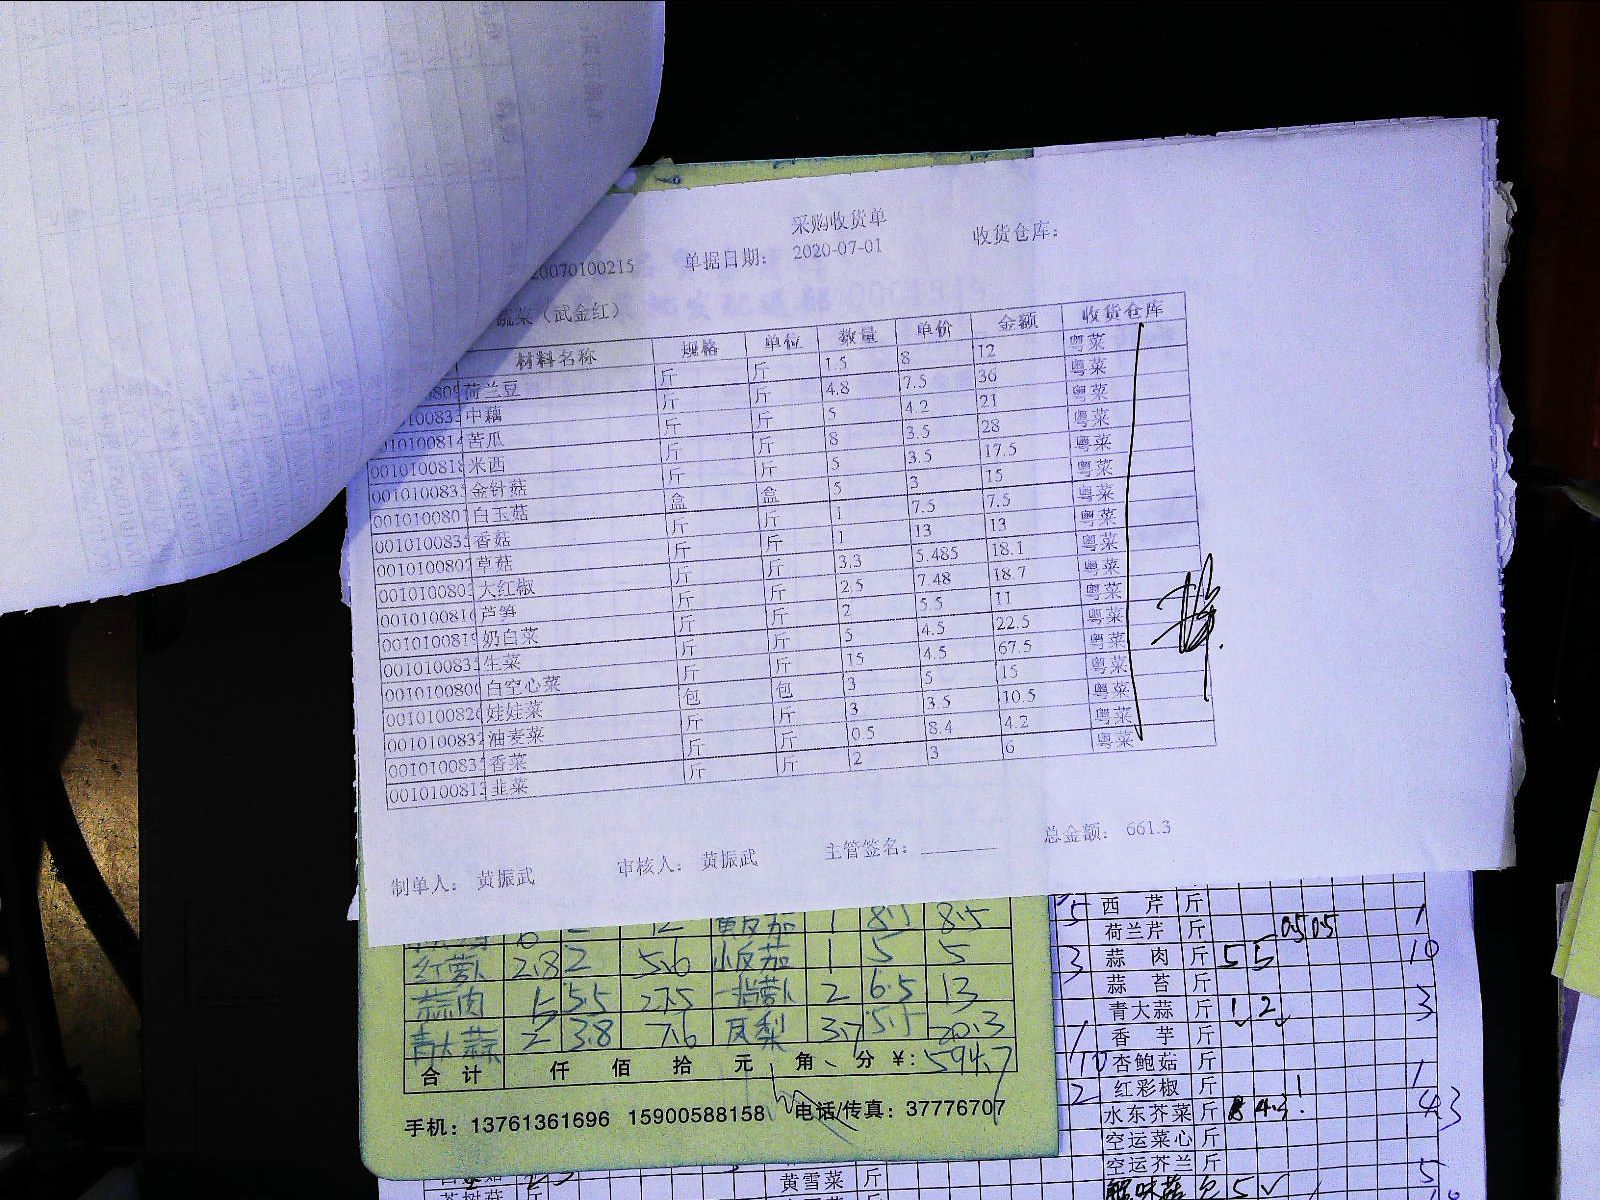 采购收货单
20070100215 单据日期： 2020-07-01 收货仓库：
蔬菜（武金红）
材料名称 规格 单位 数量 单价 金额 收货仓库
荷兰豆 斤 斤 1.5 8 12 粤菜
中藕 斤 斤 4.8 7.5 36 粤菜
苦瓜 斤 斤 5 4.2 21 粤菜
0010100818 米西 斤 斤 8 3.5 28 粤菜
001010083 金针菇 斤 斤 5 3.5 17.5 粤菜
001010080 白玉菇 盒 盒 5 3 15 粤菜
001010083 香菇 斤 斤 1 7.5 7.5 粤菜
001010080 草菇 斤 斤 1 13 13 粤菜
001010080 大红椒 斤 斤 3.3 5.485 18.1 粤菜
001010081 芦笋 斤 斤 2.5 7.48 18.7 粤菜
001010081 奶白菜 斤 斤 2 5.5 11 粤菜
001010083 生菜 斤 斤 5 4.5 22.5 粤菜
001010080 白空心菜 斤 斤 15 4.5 67.5 粤菜
001010082 娃娃菜 包 包 3 5 15 粤菜
001010083 油麦菜 斤 斤 3 3.5 10.5 粤菜
001010083 香菜 斤 斤 0.5 8.4 4.2 粤菜
001010081 韭菜 斤 斤 2 3 6 粤菜
制单人： 黄振武 审核人： 黄振武 主管签名： 总金额： 661.3
12 黄皮茄 1 8.5 8.5
红萝卜 2.8 2 5.6 小皮茄 1 5 5
蒜肉 5 5.5 27.5 一指萝卜 2 6.5 13
青大蒜 2 3.8 7.6 凤梨 3.7 5.5 20.3
合计 仟 佰 拾 元 角 分 ¥: 594.7
手机：13761361696 15900588158 电话/传真：37776707
5 西芹 斤
荷兰芹 斤 0.5 0.5 1
3 蒜肉 斤 5 5 10
蒜苔 斤
青大蒜 斤 1 2 3
1 香芋 斤
10 杏鲍菇 斤
2 红彩椒 斤 1 1
水东芥菜 斤 4.3 4.3
空运菜心 斤
空运芥兰 斤 5
黄雪菜 斤
茶树菇 斤